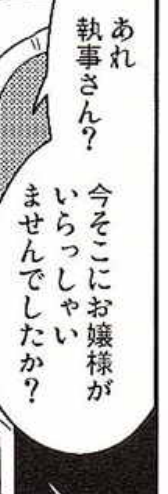 あれ
執事さん？
今そこにお嬢様が
いらっしゃい
ませんでしたか？